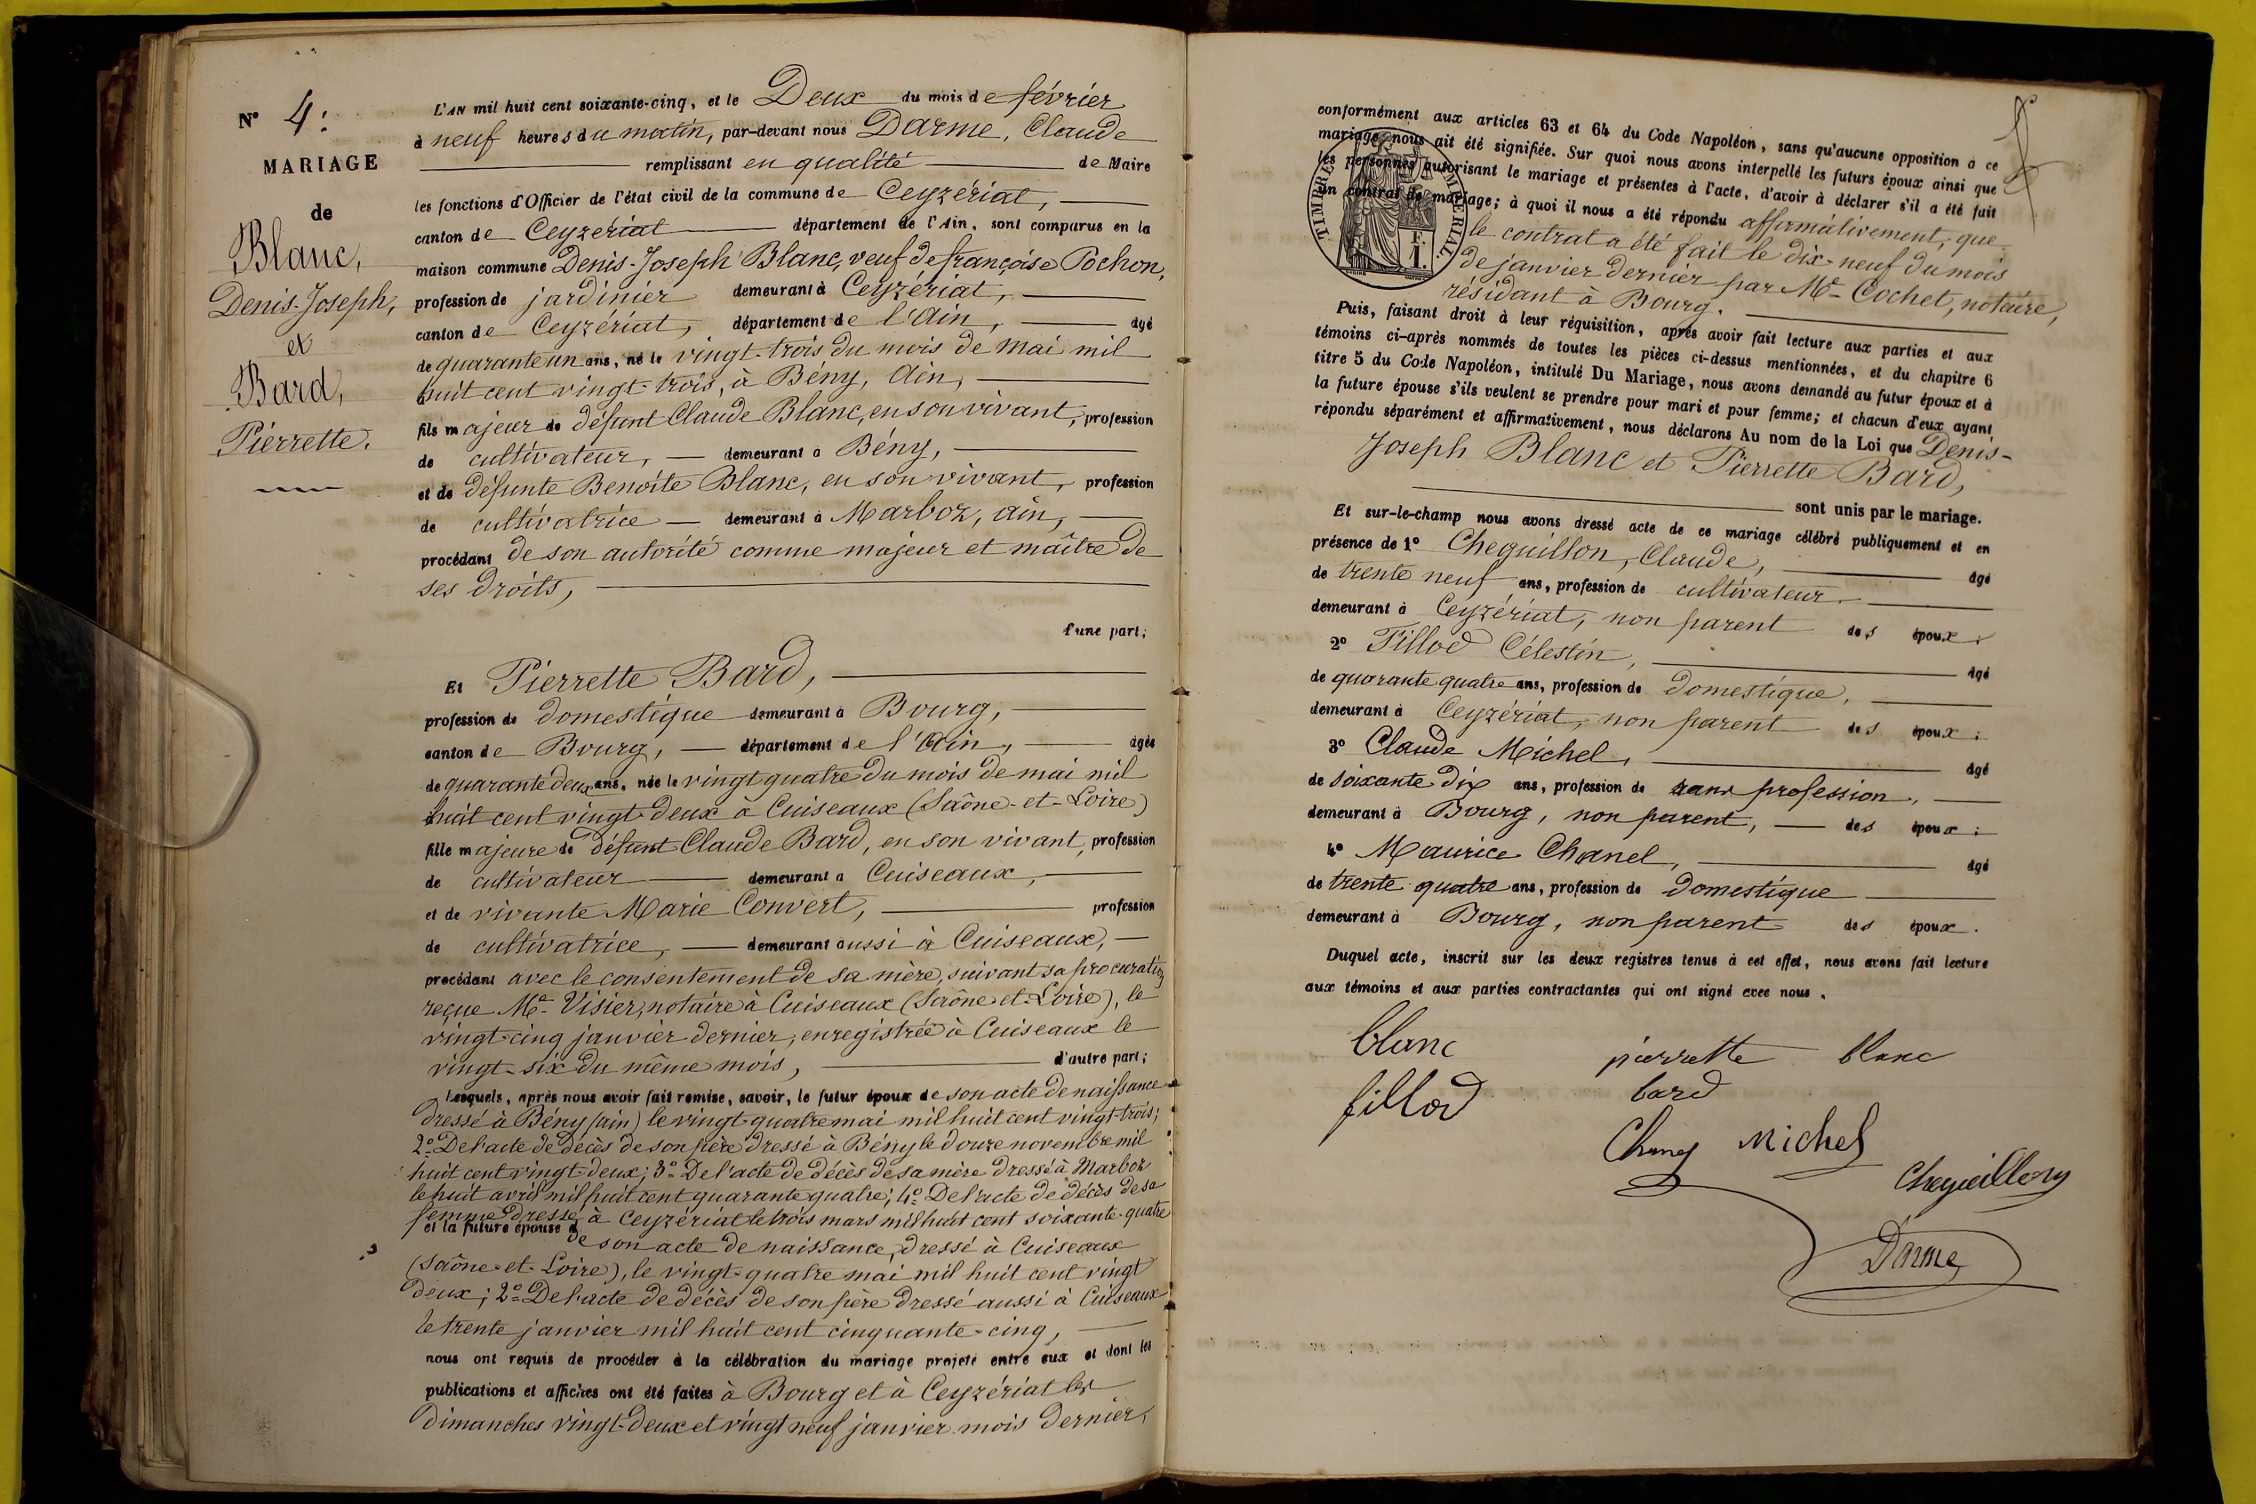 N° 4.
MARIAGE
de
Blanc,
Denis-Joseph,
et
Bard,
Pierrette.
L'AN mil huit cent soixante-cinq, et le Deux du mois de février
à neuf heures du matin, par-devant nous Darme, Claude
remplissant en qualité de Maire
les fonctions d'Officier de l'état civil de la commune de Ceyzériat,
canton de Ceyzériat département de l'Ain, sont comparus en la
maison commune Denis-Joseph Blanc, veuf de françoise Pochon,
profession de jardinier demeurant à Ceyzériat,
canton de Ceyzériat, département de l'Ain, âgé
de quarante un ans, né le vingt-trois du mois de mai mil
huit cent vingt-trois, à Bény, Ain,
fils majeur de défunt Claude Blanc, en son vivant, profession
de cultivateur, demeurant à Bény,
et de défunte Benoite Blanc, en son vivant, profession
de cultivatrice demeurant à Marboz, ain,
procédant de son autorité comme majeur et maître de
ses droits,
d'une part;
Et Pierrette Bard,
profession de domestique demeurant à Bourg,
canton de Bourg, département de l'Ain, âgée
de quarante deux ans, née le vingt quatre du mois de mai mil
huit cent vingt-deux à Cuiseaux (Saône-et-Loire)
fille majeure de défunt Claude Bard, en son vivant, profession
de cultivateur demeurant à Cuiseaux,
et de vivante Marie Convert, profession
de cultivatrice, demeurant aussi à Cuiseaux,
procédant avec le consentement de sa mère, suivant sa procuration
reçue Me Visier, notaire à Cuiseaux (Saône-et-Loire), le
vingt-cinq janvier dernier, enregistrée à Cuiseaux le
vingt-six du même mois, d'autre part;
Lesquels, après nous avoir fait remise, savoir, le futur époux de son acte de naissance
dressé à Bény (ain) le vingt-quatre mai mil huit cent vingt-trois;
2° De l'acte de décès de son père dressé à Bény le douze novembre mil
huit cent vingt-deux; 3° De l'acte de décès de sa mère dressé à Marboz
le huit avril mil huit cent quarante quatre; 4° De l'acte de décès de sa
femme dressé à Ceyzériat le trois mars mil huit cent soixante-quatre
et la future épouse de son acte de naissance, dressé à Cuiseaux
(Saône-et-Loire), le vingt-quatre mai mil huit cent vingt
deux; 2° De l'acte de décès de son père dressé aussi à Cuiseaux
le trente janvier mil huit cent cinquante-cinq,
nous ont requis de procéder à la célébration du mariage projeté entre eux et dont les
publications et affiches ont été faites à Bourg et à Ceyzériat les
dimanches vingt-deux et vingt neuf janvier mois dernier,
conformément aux articles 63 et 64 du Code Napoléon, sans qu'aucune opposition à ce
mariage nous ait été signifiée. Sur quoi nous avons interpellé les futurs époux ainsi que
les personnes autorisant le mariage et présentes à l'acte, d'avoir à déclarer s'il a été fait
un contrat de mariage; à quoi il nous a été répondu affirmativement, que
le contrat a été fait le dix-neuf du mois
de janvier dernier par Me Cochet, notaire,
résidant à Bourg.
TIMBRE IMPÉRIAL
F.
1.
Puis, faisant droit à leur réquisition, après avoir fait lecture aux parties et aux
témoins ci-après nommés de toutes les pièces ci-dessus mentionnées, et du chapitre 6
titre 5 du Code Napoléon, intitulé Du Mariage, nous avons demandé au futur époux et à
la future épouse s'ils veulent se prendre pour mari et pour femme; et chacun d'eux ayant
répondu séparément et affirmativement, nous déclarons Au nom de la Loi que Denis-
Joseph Blanc et Pierrette Bard,
sont unis par le mariage.
Et sur-le-champ nous avons dressé acte de ce mariage célébré publiquement et en
présence de 1° Cheguillon, Claude, âgé
de trente neuf ans, profession de cultivateur
demeurant à Ceyzériat, non parent des époux;
2° Fillod Célestin, âgé
de quarante quatre ans, profession de domestique,
demeurant à Ceyzériat, non parent des époux;
3° Claude Michel, âgé
de soixante-dix ans, profession de sans profession,
demeurant à Bourg, non parent, des époux;
4° Maurice Chanel, âgé
de trente quatre ans, profession de domestique
demeurant à Bourg, non parent des époux.
Duquel acte, inscrit sur les deux registres tenus à cet effet, nous avons fait lecture
aux témoins et aux parties contractantes qui ont signé avec nous.
blanc pierrette blanc
fillod bard
Michel
Cheguillon
Darme